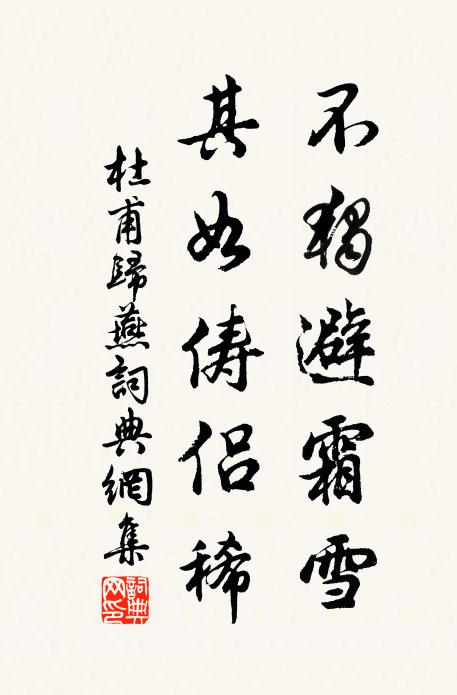 不獨避霜雪
其如儔侶稀
杜甫歸燕詞典網集
詞典網印